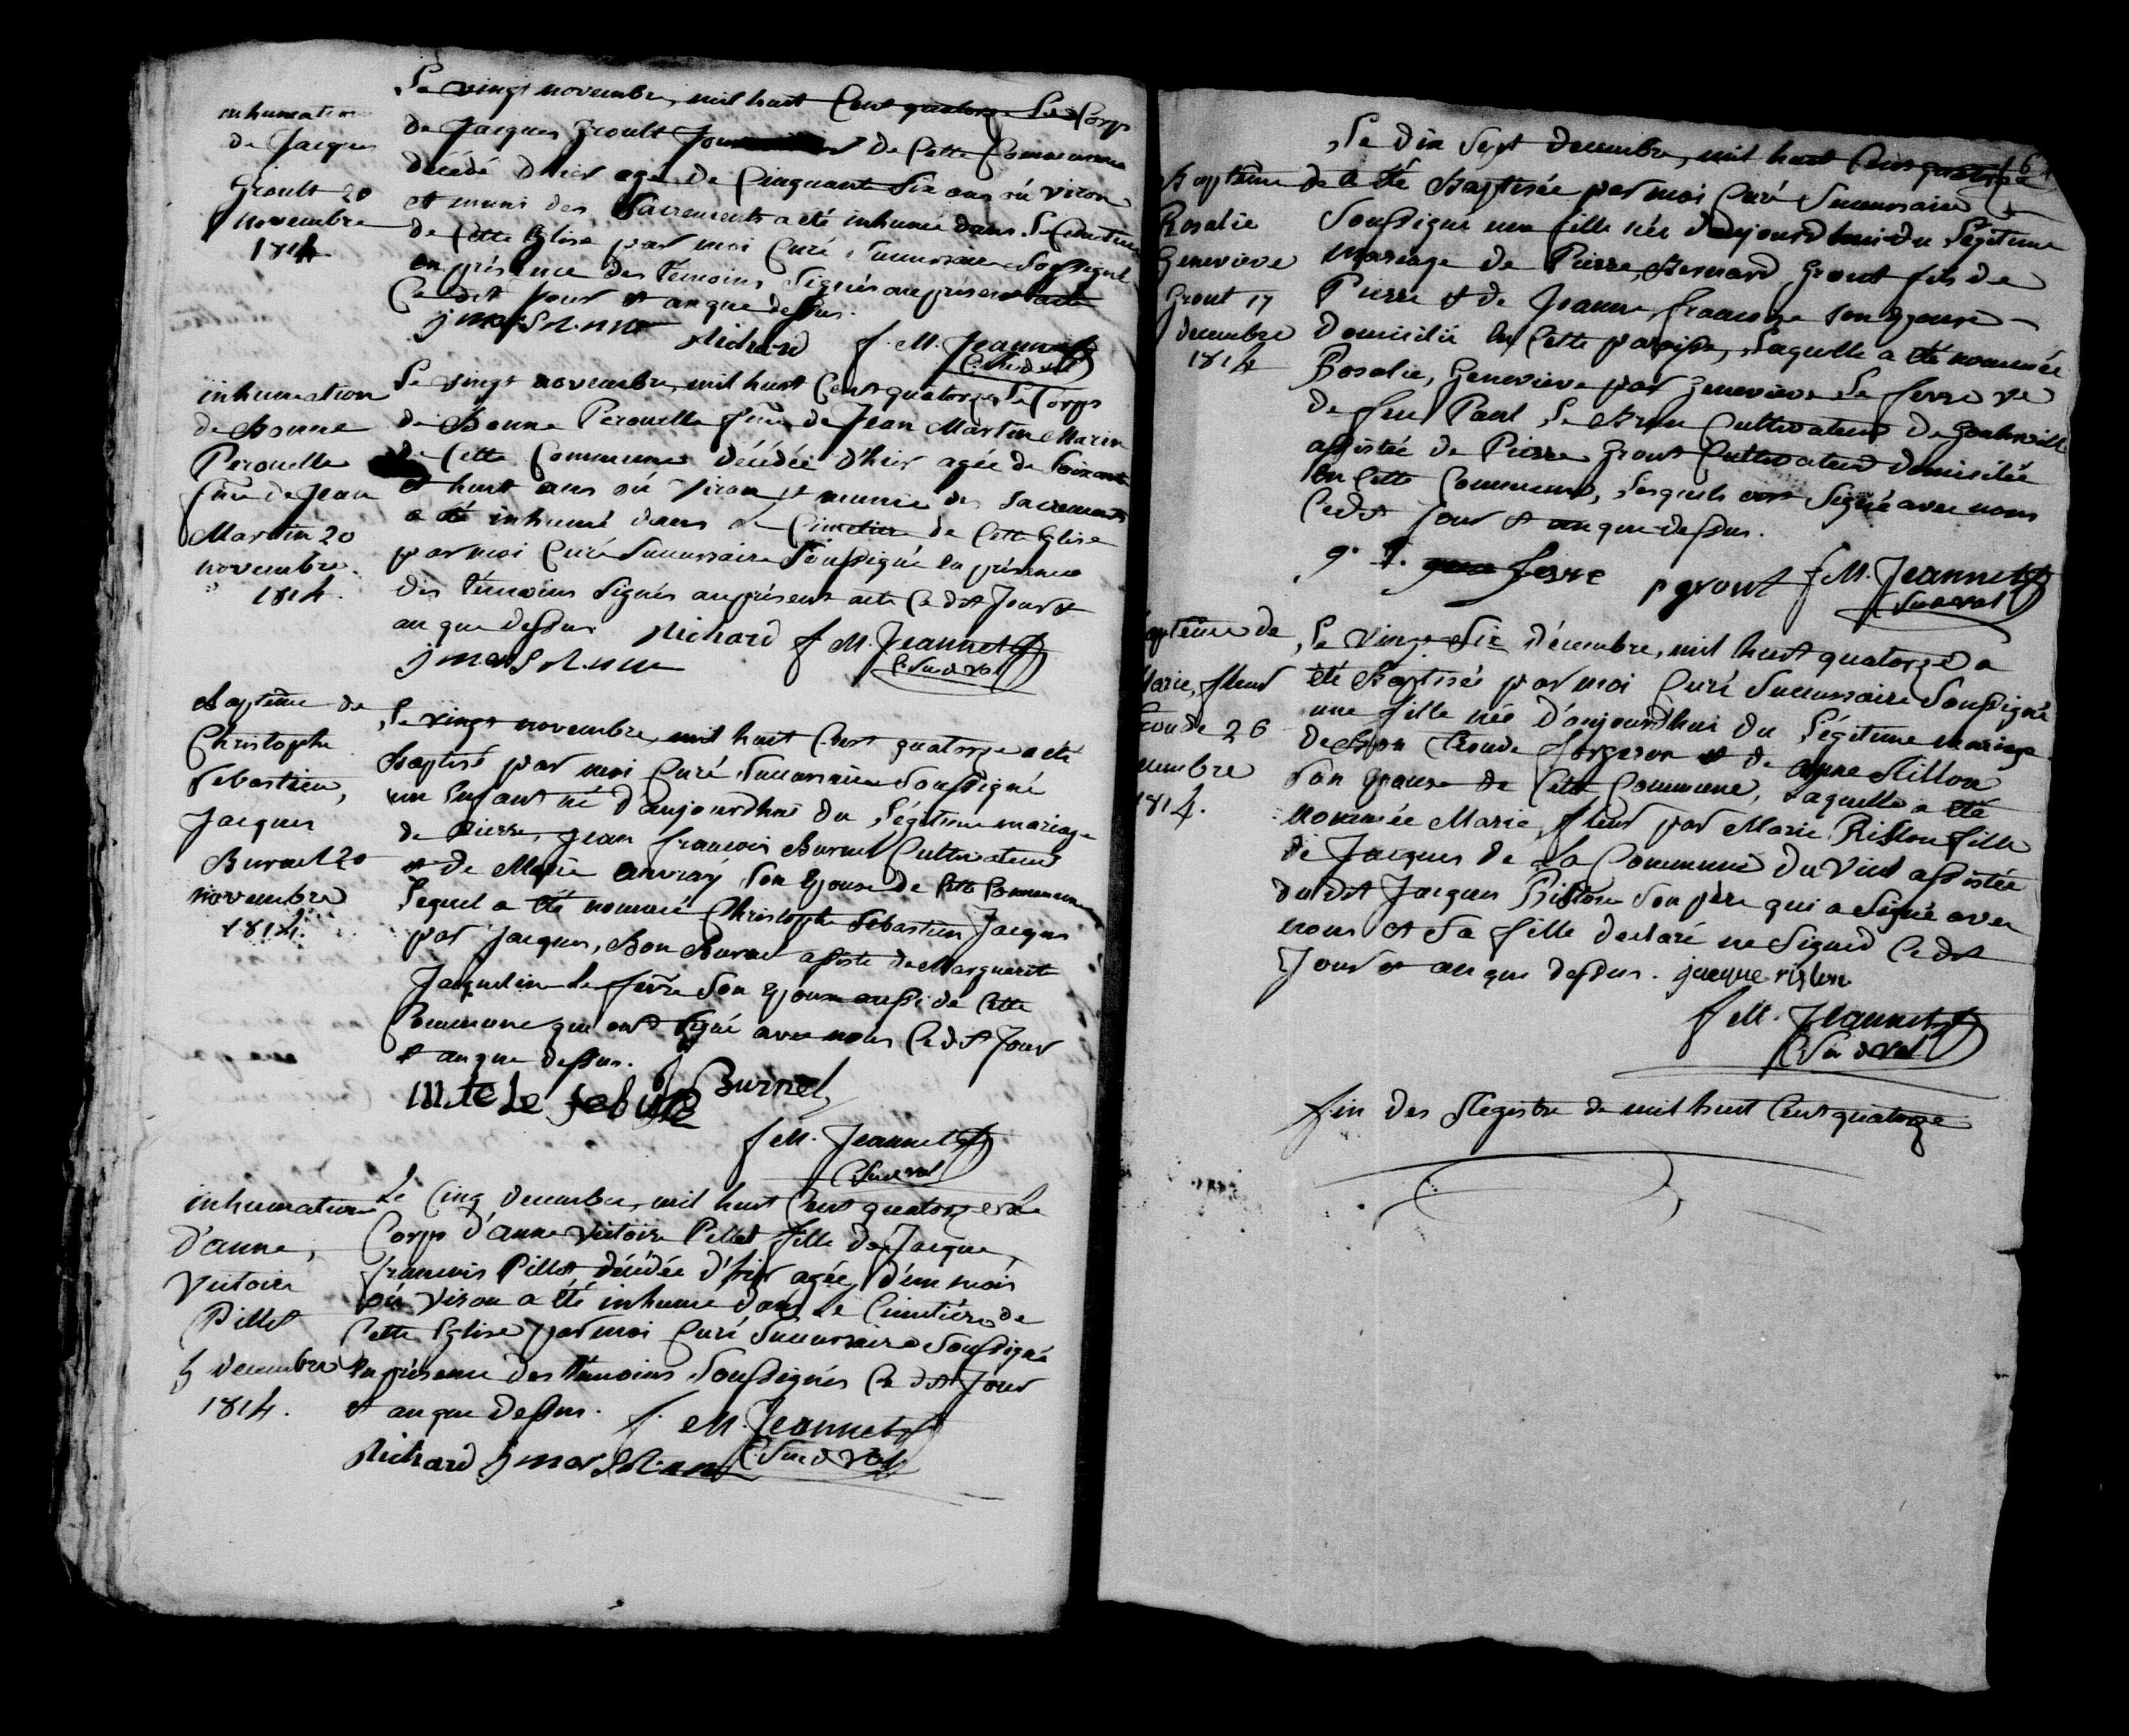 inhumation
de Jacques
Groult 20
novembre
1814
Le vingt novembre, mil huit Cent quatorze Le Corps
de Jacques Groult de Cette Commune
décédé d'hier agé de Cinquante Six ans où viron
et muni des Sacrements a été inhumé dans Le Cimetiere
de Cette Eglise par moi Curé Succursaire Soussigné
en présence des témoins Signés au présent acte
Ce dit Jour et an que dessus.
Richard f. M. Jeannet
inhumation
de Bonne
Perouelle
fme de Jean
Martin 20
novembre
1814.
Le vingt novembre, mil huit Cent quatorze Le Corps
de Bonne Perouelle fme de Jean Martin Marin
de Cette Commune décédée d'hier agée de Soixante
et huit ans où viron et munie des Sacrements
a été inhumé dans Le Cimetiere de Cette Eglise
par moi Curé Succursaire Soussigné en présence
des témoins Signés au présent acte Ce dit Jour et
an que dessus Richard f M. Jeannet
Baptême de
Christophe
Sebastien,
Jacques
Burnel 20
novembre
1814.
Le vingt novembre, mil huit Cent quatorze a été
Baptisé par moi Curé Succursaire Soussigné
un Enfant né d'aujourdhui du Légitime mariage
de Pierre, Jean francois Burnel Cultivateur
et de Marie auvray Son Epouse de Cette Commune
Lequel a été nommé Christophe Sebastien Jacques
par Jacques, Bon Burnel assisté de Marguerite
Jaqueline Le fevre Son Epouse aussi de Cette
Commune qui ont Signé avec nous Ce dit Jour
et an que dessus.
mte Le febvre Burnel
f M. Jeannet
inhumation
d'anne,
Victoire
Pillet
5 decembre
1814.
Le Cinq decembre, mil huit Cent quatorze Le
Corps d'anne Victoire Pillet fille de Jacque
francois Pillet décédée d'hier agée d'un mois
où viron a été inhumé dans Le Cimetière de
Cette Eglise par moi Curé Succursaire Soussigné
en présence des témoins Soussignés Ce dit Jour
et an que dessus. f. M. Jeannet
Richard
Baptême de
Rosalie
Genevieve
Grout 17
decembre
1814
Le dix Sept decembre, mil huit Cent quatorze
a été Baptisée par moi Curé Succursaire
Soussigné une fille née d'aujourdhui du Légitime
mariage de Pierre, Bernard Grout fils de
Pierre et de Jeanne, francoise Son Epouse
domicilié en Cette paroisse, Laquelle a été nommée
Rosalie, Genevieve par Genevieve Le ferre ve
de feu Paul Le Brun Cultivateur de
assistée de Pierre Grout Cultivateur domicilié
en Cette Commune, Lesquels ont Signé avec nous
Ce dit Jour et an que dessus.
ferre p grout f M. Jeannet
Le vingt Six décembre, mil huit quatorze a
été Baptisée par moi Curé Succursaire Soussigné
une fille née d'aujourdhui du Légitime mariage
de Bon forgeron et de anne
Son Epouse de Cette Commune, Laquelle a été
nommée Marie, fleur par Marie Riston fille
de Jacques de La Commune du Vict assistée
du dit Jacques Riston Son père qui a Signé avec
nous et Sa fille déclaré ne Signer Ce dit
Jour et an que dessus. jacque riston
f M. Jeannet
fin des Registre de mil huit Cent quatorze